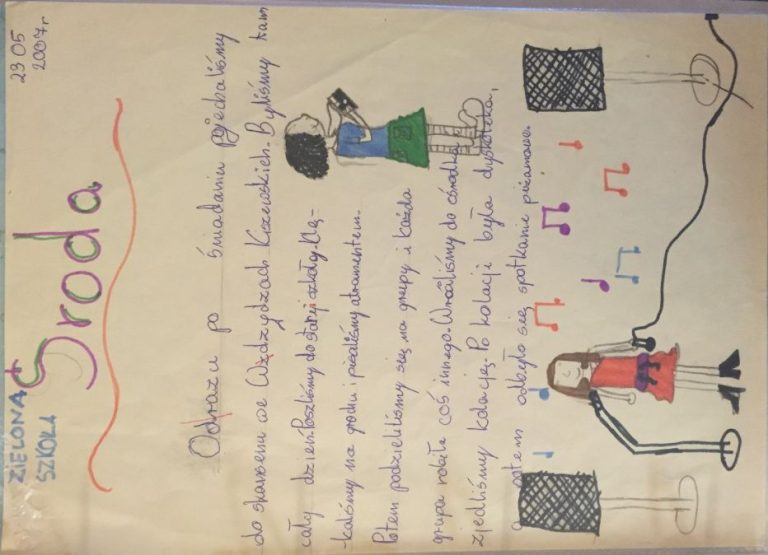 ZIELONA
SZKOŁA
23 05
2007r
Środa
Odrazu po śniadaniu pojechaliśmy
do skansenu we Wdzydzach Kiszewskich. Byliśmy tam
cały dzień. Poszliśmy do starej szkoły. Klę-
-kaliśmy na grochu i pisaliśmy atramentem.
Potem podzieliliśmy się na grupy i każda
grupa robiła coś innego. Wróciliśmy do ośrodka
zjedliśmy kolację. Po kolacji była dyskoteka,
a potem odbyło się spotkanie piżamowe.